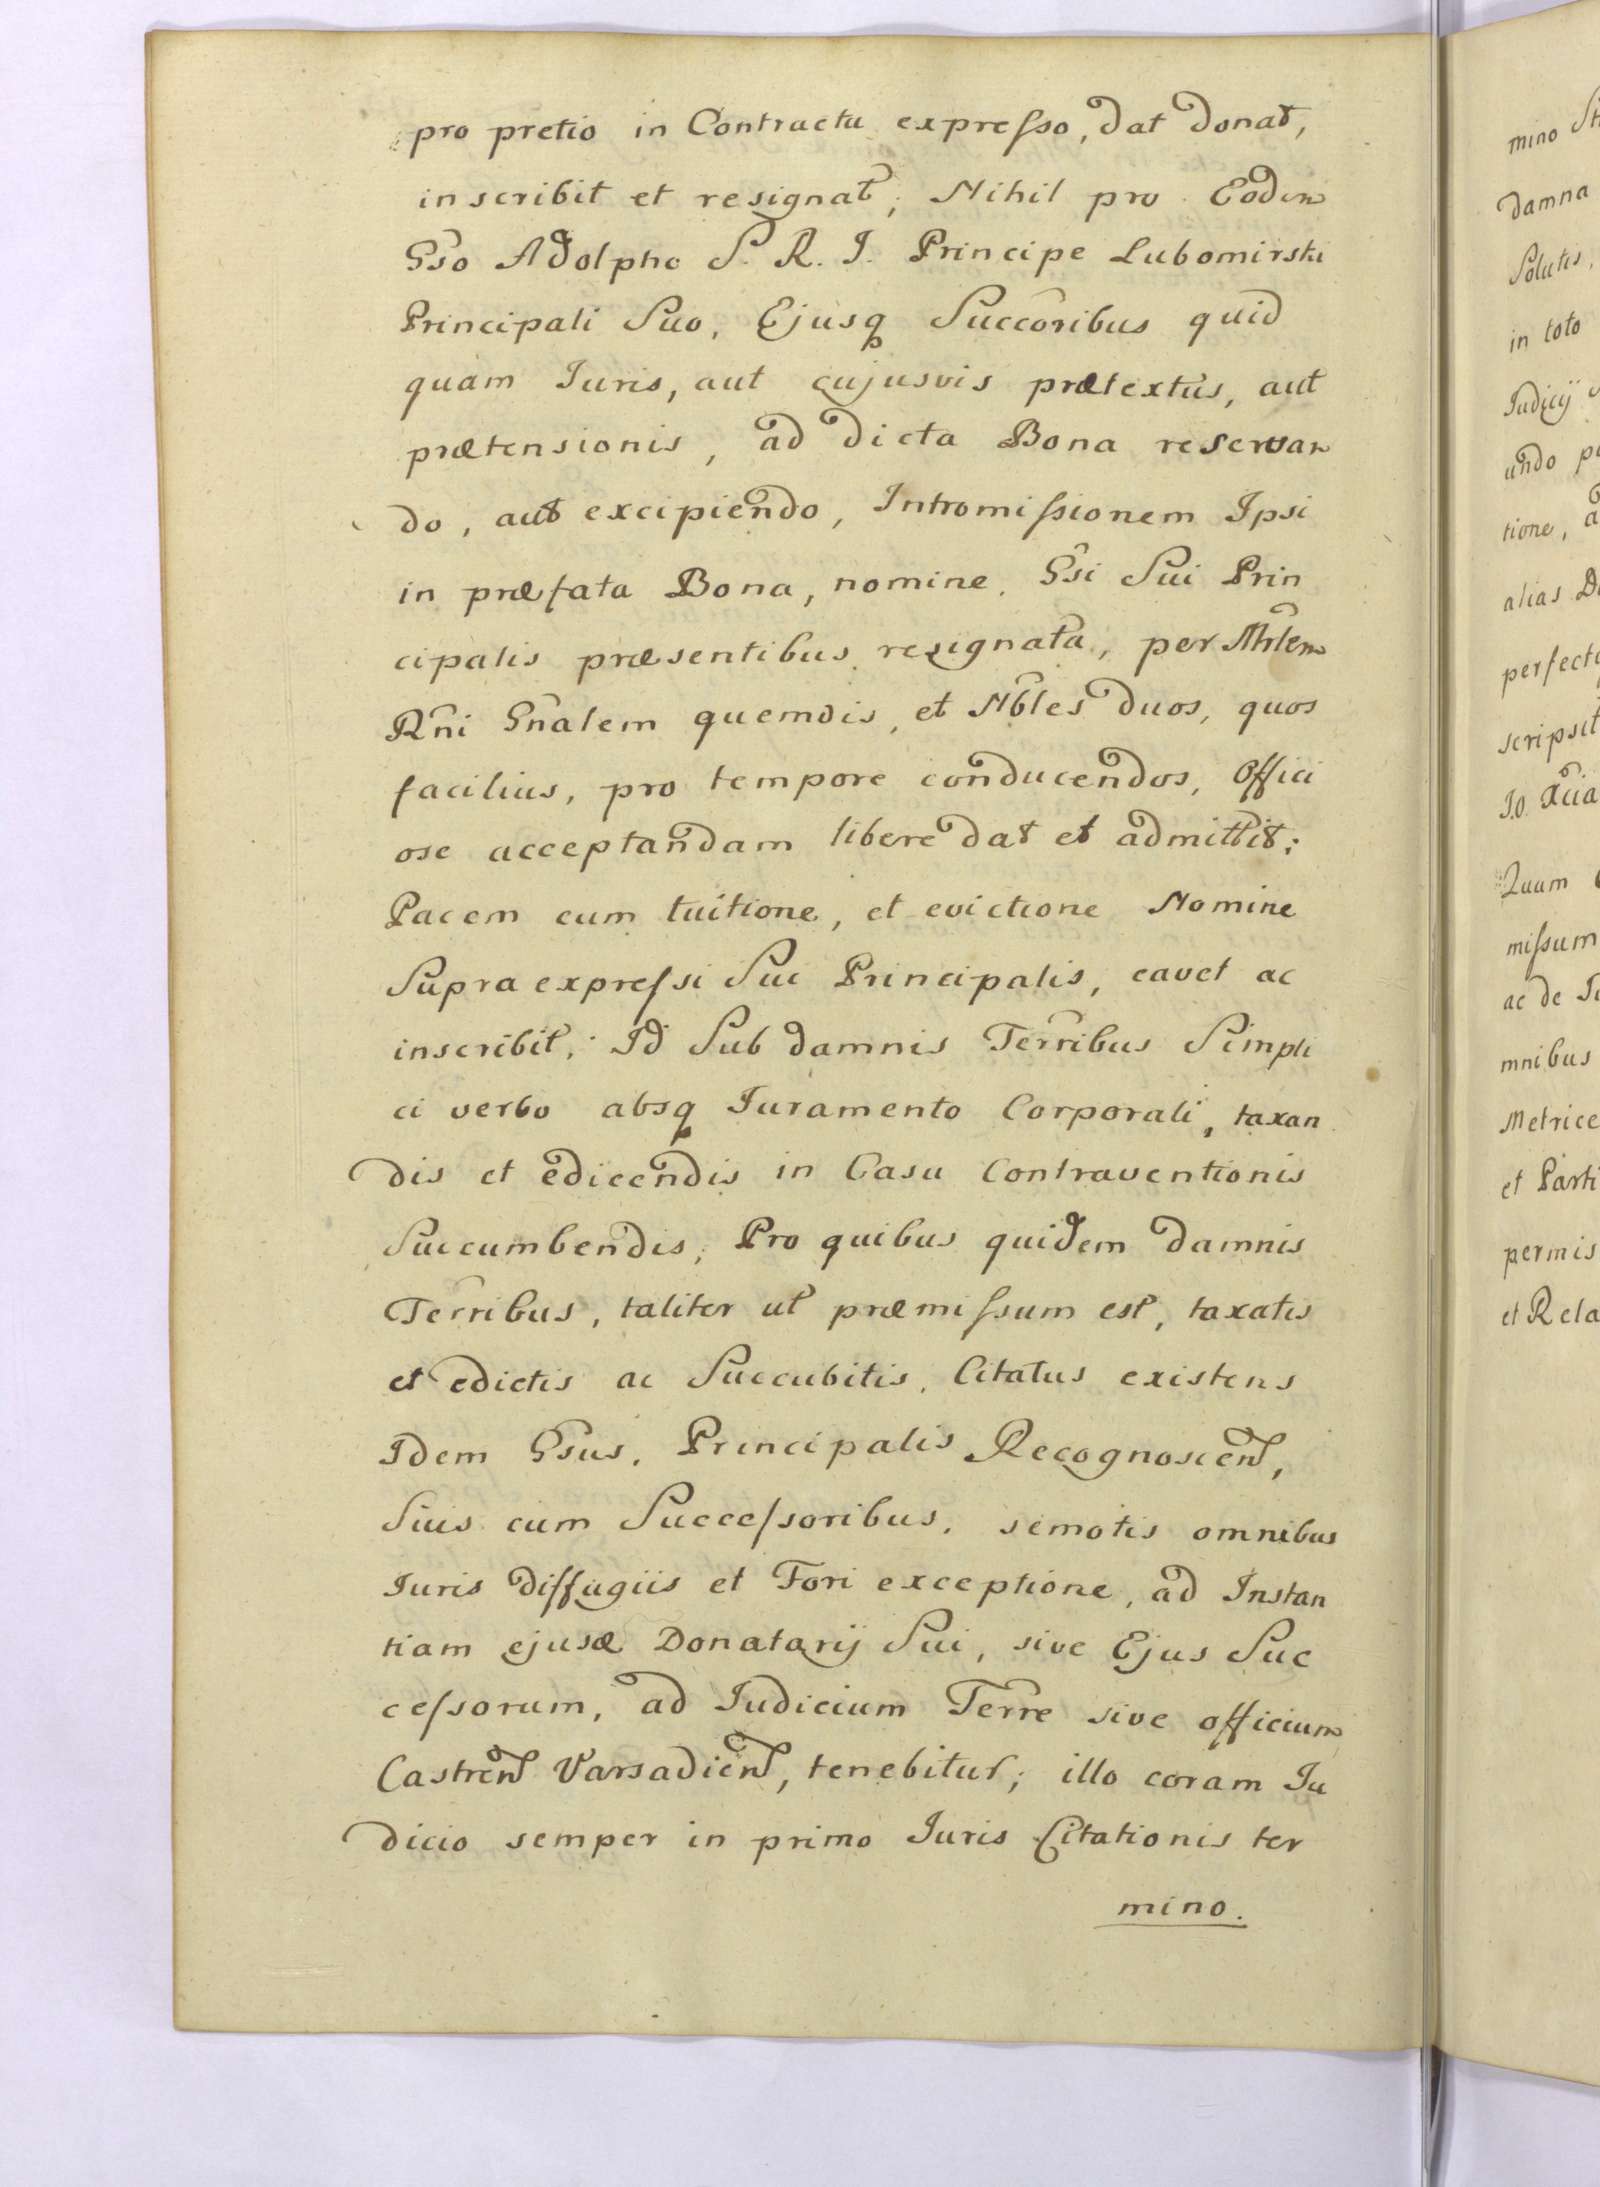 pro pretio in Contractu expresso, dat donat,
inscribit et resignat; Nihil pro Eodem
Gso Adolpho S. R. I. Principe Lubomirski
Principali Suo, Ejusq Succoribus quid
quam Iuris, aut cujusvis prætextus, aut
prætensionis, ad dicta Bona reservan
do, aut excipiendo, Intromissionem Ipsi
in præfata Bona, nomine Gsi Sui Prin
cipalis præsentibus resignata, per Mrlem
Rni Gnalem quemvis, et Nbles duos, quos
facilius, pro tempore conducendos, Offici
ose acceptandam libere dat et admittit;
Pacem cum tuitione, et evictione Nomine
Supra expressi Sui Principalis, cavet ac
inscribit; Id Sub damnis Terribus Simpli
ci verbo absq Iuramento Corporali, taxan
dis et edicendis in Casu Contraventionis
Succumbendis; Pro quibus quidem damnis
Terribus, taliter ut præmissum est, taxatis
et edictis ac Succubitis, Citatus existens
Idem Gsus, Principalis Recognoscen,
Suis cum Successoribus, semotis omnibus
Iuris diffugiis et Fori exceptione, ad Instan
tiam ejusd Donatarij Sui, sive Ejus Suc
cessorum, ad Iudicium Terre sive officium
Castren Varsavien, tenebitur; illo coram Iu
dicio semper in primo Iuris Citationis ter
mino.
mino
damna
Solutis,
in toto
Iudicij
undo
tione,
alias
perfect
scripsit
I.O.
Quum
missum
ac de
mnibus
Metrice
et Parti
permis
et Rela